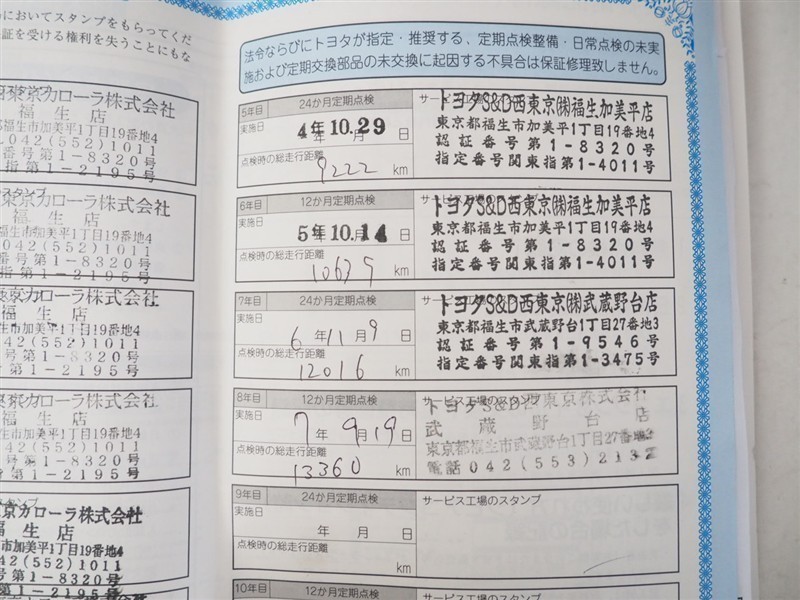 においてスタンプをもらってくだ
証を受ける権利を失うことにもな
西東京カローラ株式会社
福生店
福生市加美平1丁目19番地4
042(552)1011
番号第1-8320号
指第1-2195号
スタンプ
東京カローラ株式会社
福生店
生市加美平1丁目19番地4
042(552)1011
番号第1-8320号
指第1-2195号
東京カローラ株式会社
福生店
生市加美平1丁目19番地4
42(552)1011
号第1-8320号
第1-2195号
京カローラ株式会社
福生店
市加美平1丁目19番地4
42(552)1011
号第1-8320号
第1-2195号
スタンプ
京カローラ株式会社
福生店
市加美平1丁目19番地4
42(552)1011
号第1-8320号
第1-2195号
法令ならびにトヨタが指定・推奨する、定期点検整備・日常点検の未実
施および定期交換部品の未交換に起因する不具合は保証修理致しません。
5年目 24か月定期点検 サービス工場のスタンプ
実施日
4年10.29 年 月 日
点検時の総走行距離
9222 km
トヨタS&D西東京㈱福生加美平店
東京都福生市加美平1丁目19番地4
認証番号第1-8320号
指定番号関東指第1-4011号
6年目 12か月定期点検 サービス工場のスタンプ
実施日
5年10.14 日
点検時の総走行距離
10635 km
トヨタS&D西東京㈱福生加美平店
東京都福生市加美平1丁目19番地4
認証番号第1-8320号
指定番号関東指第1-4011号
7年目 24か月定期点検 サービス工場のスタンプ
実施日
6年11月9日
点検時の総走行距離
12016 km
トヨタS&D西東京㈱武蔵野台店
東京都福生市武蔵野台1丁目27番地3
認証番号第1-9546号
指定番号関東指第1-3475号
8年目 12か月定期点検 サービス工場のスタンプ
実施日
7年9月19日
点検時の総走行距離
13360 km
トヨタS&D西東京株式会社
武蔵野台店
東京都福生市武蔵野台1丁目27番地
電話042(553)2132
9年目 24か月定期点検 サービス工場のスタンプ
実施日
年 月 日
点検時の総走行距離
km
10年目 12か月定期点検 サービス工場のスタンプ